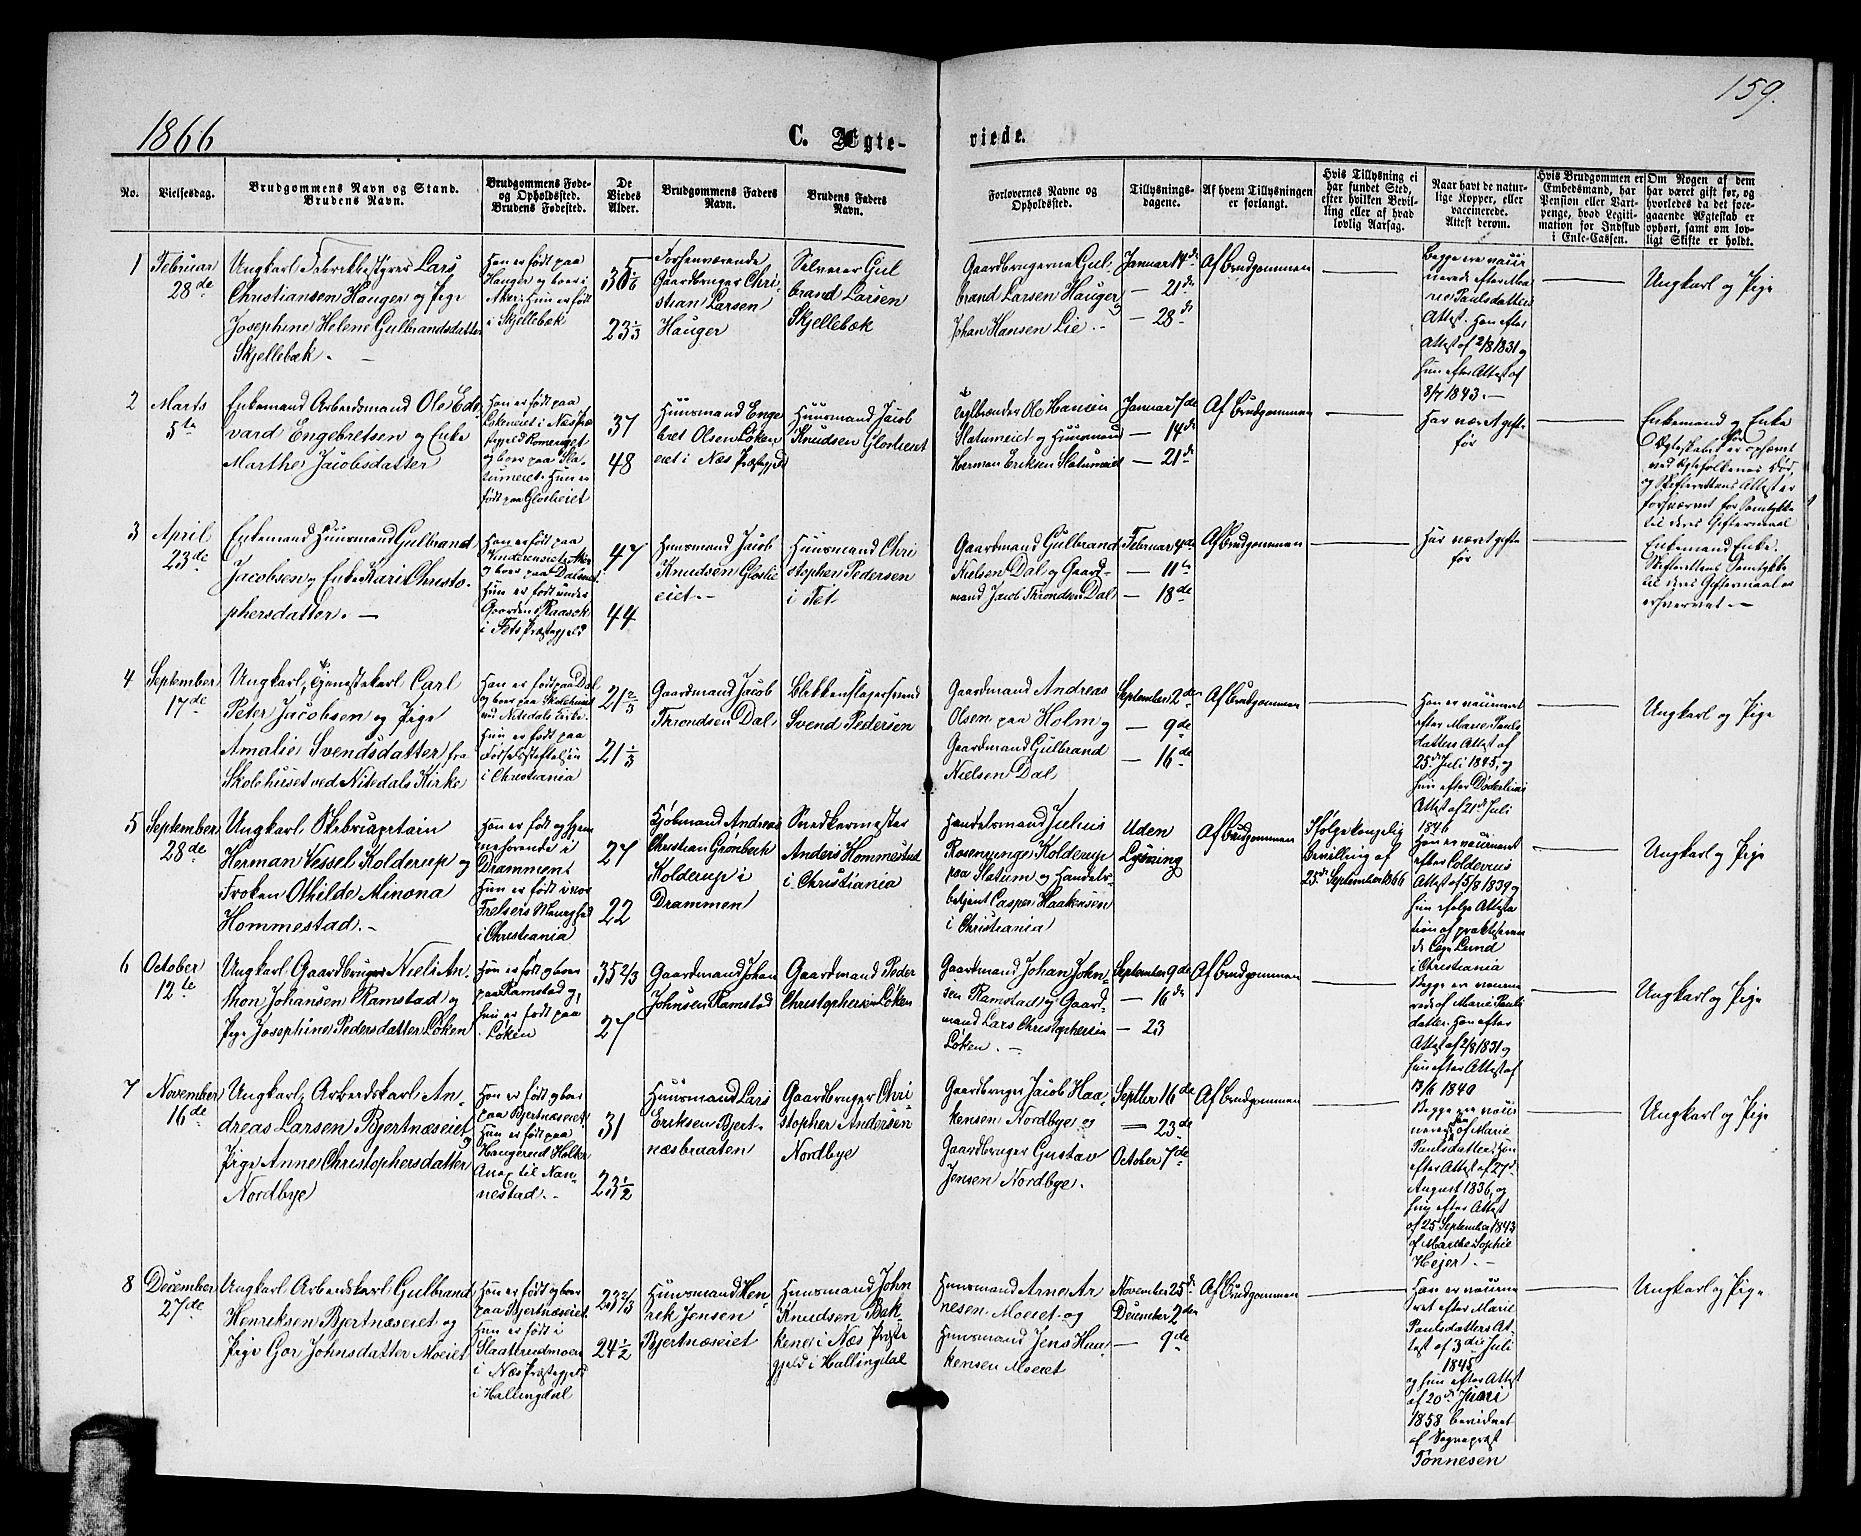 159.
1866
C. Ægte-
viede.
No.
Vielsesdag.
Brudgommens Navn og Stand.
Brudens Navn.
Brudgommens Føde-
og Opholdssted.
Brudens Fødested.
De
Viedes
Alder.
Brudgommens Faders
Navn.
Brudens Faders
Navn.
Forlovernes Navne og
Opholdssted.
Tillysnings-
dagene.
Af hvem Tillysningen
er forlangt.
Hvis Tillysning ei
har fundet Sted,
efter hvilken Bevil-
ling eller af hvad
lovlig Aarsag.
Naar havt de natur-
lige Kopper, eller
vaccinerede.
Attest derom.
Hvis Brudgommen er
Embedsmand, har
Pension eller Vart-
penge, hvad Legiti-
mation for Indskud
i Enke-Cassen.
Om Nogen af dem
har været gift før, og
hvorledes da det fore-
gaaende Ægteskab er
ophørt, samt om lov-
ligt Skifte er holdt.
1
Februar
28de
Ungkarl Fabrikbestyrer Lars
Christiansen Hauger og Pige
Josephine Helene Gulbrandsdatter
Skjellebæk. —
Han er født paa
Hauger og boer i
Aker. Hun er født
i Skjellebæk
23 1/3
Forhenværende
Gaardbruger Chri-
stian Larsen
Hauger
Selveier Gul
brand Larsen
Skjellebæk
Gaardbrugerne Gul-
brand Larsen Hauger
Johan Hansen Lie. -
Januar 14de
— 21de
— 28de
Af Brudgommen
Begge ere vacci-
nerede efter Ma-
rie Paulsdatters
Attest. Han efter
Attest af 2/8 1831 og
hun efter Attest af
8/7 1843. —
Ungkarl og Pige
2
Marts
5te
Enkemand Arbeidsmand Ole Ed-
vard Engebretsen og Enke
Marthe Jacobsdatter
Han er født paa
Løkeneiet i Næs Præ
stegjeld Romeriget
og boer paa Sla-
tumeiet. Hun er
født paa Gloslieiet
37
48
Huusmand Enge
bret Olsen Løken
eiet i Næs Præstegjeld
Huusmand Jacob
Knudsen Gloslieiet
Teglbrænder Ole Hansen
Slatumeiet og Huusmand
Herman Eriksen Slatumeiet
Januar 7de
— 14de
— 21de
Af Brudgommen
Har været gifte
før
Enkemand og Enke
Ægteskabet er ophævet
ved Ægtefolkenes Død,
og Skifterettens Attest er
forhvervet for Samtykke
til deres Giftermaal
3
April
23de
Enkemand Huusmand Gulbrand
Jacobsen og Enke Kari Christo-
phersdatter. —
Han er født paa
og boer paa Dalseiet
Hun er født under
Gaarden Raasok
i Fets Præstegjeld
47
44
Huusmand Jacob
Knudsen Gloslie
eiet. -
Huusmand Chri
stopher Pedersen
i Fet
Gaardmand Gulbrand
Nielsen Dal og Gaard-
mand Jacob Throndsen Dal
Februar 4de
— 11te
— 18de
Af Brudgommen
Har været gifte
før
Enkemand Enke.
Skifterettens Samtykke
til deres Giftermaal er
erhvervet. —
4
September
17de
Ungkarl, Tjenestekarl Carl
Peter Jacobsen og Pige
Amalie Svendsdatter fra
Skolehuset ved Nitedals Kirke
Han er født paa Dal
og boer paa Skolehuset
ved Nitedals Kirke.
Hun er født paa
Fødselsstiftelsen
i Christiania
21 2/3
21 1/3
Gaardmand Jacob
Throndsen Dal
Blikkenslagersvend
Svend Pedersen
Gaardmand Andreas
Olsen paa Holm og
Gaardmand Gulbrand
Nielsen Dal
September 2den
— 9de
— 16de
Af Brudgommen
Han er vaccineret
efter Marie Pauls
datters Attest af
25de Juli 1845, og
hun efter Døderleins
Attest af 21de Juli
1846
Ungkarl og Pige
5
September
28de
Ungkarl Skibscapitain
Herman Vessel Kolderup og
Frøken Othilde Minona
Hommestad. -
Han er født og hjem
mehørende i
Drammen
Hun er født i vor
Frelsers Menighed
i Christiania
27
22
Kjøbmand Andreas
Christian Grønbeck
Kolderup i
Drammen
Snedkermester
Anders Hommestad
i Christiania
Handelsmand Julius
Rosenvinge Kolderup
paa Slatum og Handels-
betjent Casper Haakensen
i Christiania
Uden
Lysning
Af Brudgommen
Ifølge kongelig
Bevilling af
25de September 1866
Han er vaccineret
efter Coldevins
Attest af 5/8 1839 og
hun ifølge Attesta
tion af praktiseren
de Læge Lund
i Christiania
Ungkarl og Pige
6
October
12te
Ungkarl Gaardbruger Niels An-
thon Johansen Ramstad og
Pige Josephine Pedersdatter Løken
Han er født og boer
paa Ramstad og
hun er født paa
Løken
35 2/3
27
Gaardmand Johan
Johnsen Ramstad
Gaardmand Peder
Christophersen Løken
Gaardmand Johan John-
sen Ramstad og Gaard-
mand Lars Christophersen
Løken. -
September 9de
— 16de
— 23
Af Brudgommen
Begge er vaccine
rede af Marie Pauls
datter. Han efter
Attest af 2/8 1831 og
hun efter Attest af
1840
Ungkarl og Pige
7
November
16de
Ungkarl, Arbeidskarl An-
dreas Larsen Bjertnæseiet og
Pige Anne Christophersdatter
Nordbye
Han er født og boer
paa Bjertnæseiet.
Hun er født paa
Haugereid Holter
Anex til Nan-
nestad. -
31
23 1/2
Huusmand Lars
Eriksen Bjert-
næsbraaten
Gaardbruger Chri
stopher Andersen
Nordbye
Gaardbruger Jacob Haa-
kensen Nordbye og
Gaardbruger Gustav
Jensen Nordbye.
Septter 16de
— 23de
October 7de
Af Brudgommen
Begge er vacci-
nerede, han af Marie
Paulsdatter. Han
efter Attest af 27de
August 1836, og
hun efter Attest
af 25 September 1843
af Marthe Sophie
Hejer. —
Ungkarl og Pige
8
December
27de
Ungkarl Arbeidskarl Gulbrand
Henriksen Bjertnæseiet og
Pige Gor Johnsdatter Moeiet
Han er født og boer
paa Bjertnæseiet.
Hun er født i
i Næs Præstegjeld
i Hallingdal
23 2/3
24 1/2
Huusmand Hen-
rik Jensen
Bjertnæseiet
Huusmand John
Knudsen Bak-
kene i Næs Præste
gjeld i Hallingdal
Huusmand Arne Ar
nesen Moeiet og
Huusmand Jens Haa-
kensen Moeiet
November 25de
December 2den
— 9de
Af Brudgommen
Han er vaccine
ret efter Marie
Paulsdatters At-
test af 3die Juli
1845
og hun efter Attest
af 20de Juni
1858 bevidnet
af Sognepræst
Tønnesen
Ungkarl og Pige